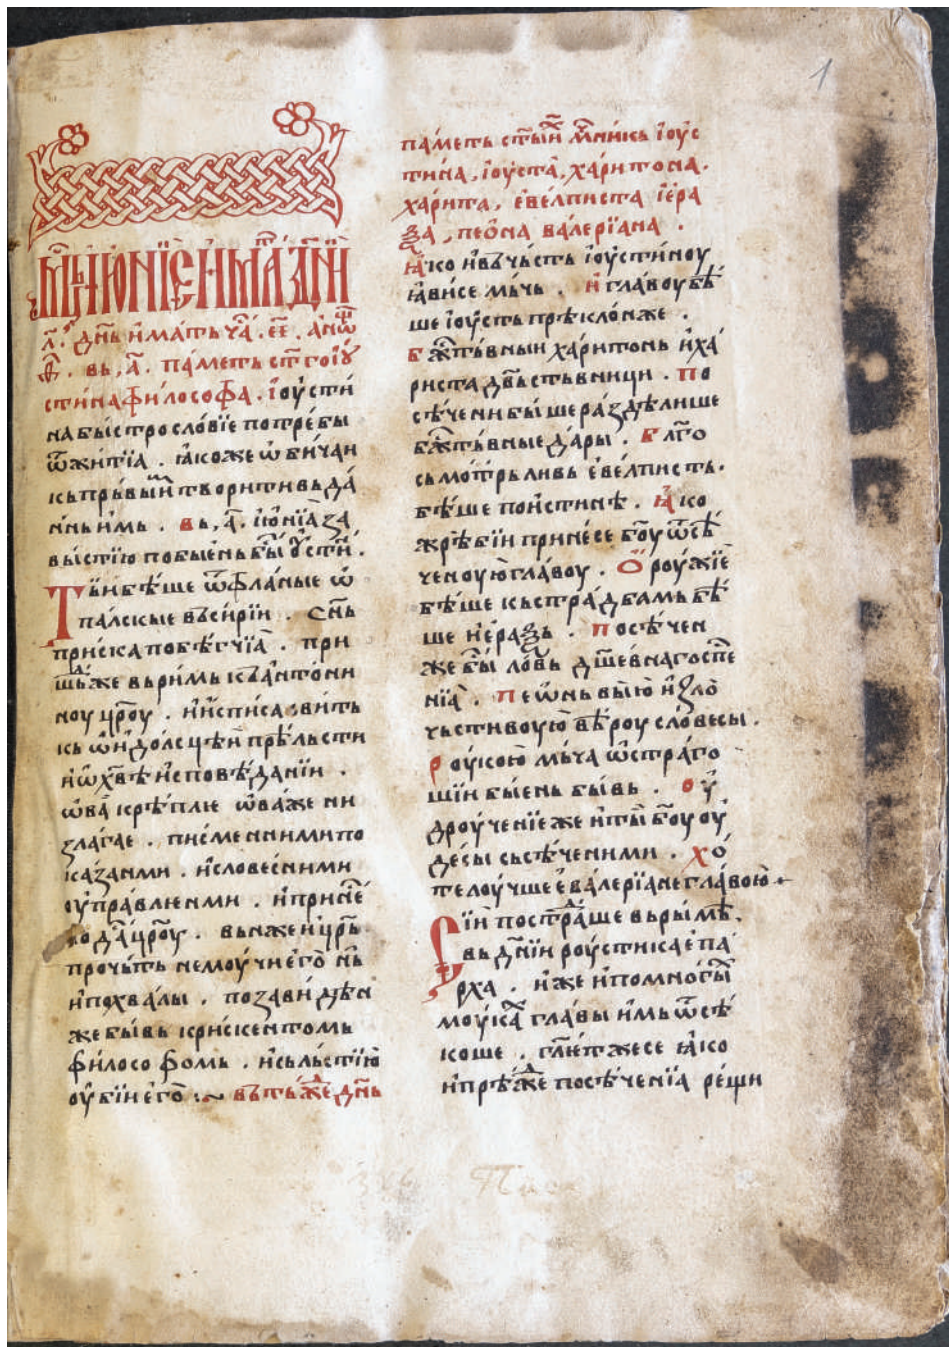 1
мⷭ҇ць їюнїе имать дн҃їи
л҃. дн҃ь имать чⷭ҇а. е҃і. а нѡщ
ѳ҃. вь, а҃. паметь ст҃го їоу
стина философа. їоусти
на быстрословїе потребы
ѿ житїа. ꙗкоже ѡбичаи
кь прьвыи творити въ да
нньимь. вь, а҃. їюнїа за
выстїю побыень бы їꙋстин.
Тьи бѣше ѿ флавые ѡ
палскые въ сирїи. сн҃ь
приска побѣгчїа. при
шьⷣ же вь римь къ антони
ноу цр҃оу. и исписа звить
кь ѡ идолсцѣи прѣльсти
и ѡ хв҃ѣ исповѣданїи.
ѡва крѣплѥ ѡва же ни
злагае. писменними по
казанми. и словесними
оуправлѥнми. и принесе
го да цр҃оу. вьнже и цр҃ь
прочьть немоучи его нь
и похвалы. позавидѣн
же бывь крискентомь
философомь. и сь льстїю
оубїи его :~ вь тьжⷣе дн҃ь
паметь ст҃ыих мⷱ҇никь їоус
тина, їоуста, харитона.
харита, евелписта їера
ѯа, пеѡна валерїана.
Ꙗко и въ чьсть їоустиноу
ꙗви се мьчь. и главоу бѣ
ше їоусть прѣклонже.
бжⷭ҇тьвныи харитонь и ха
риста двѣствници. по
сѣчени бышѥ раздѣлише
бжⷭ҇тьвные дары. бл҃го
сьмотрьливь евелпистъ.
бѣше поистинѣ. ꙗко
жрѣбїи принесе бг҃оу ѿсѣ
ченоую главоу. Ороужїе
бѣше кь страдбамь бѣ
ше иераѯь. посѣчен
же бы ловь дш҃евнаго спⷭ҇е
нїа. пеѡнь выю и зло
чьстивоую вѣроу словесы.
роукою мьча ѡстраго
шїи быень бывь. оу
дроученїе же и ты бг҃оу оу
десы сьсѣченими. хо
те лоучше е валерїане главою +
Сїи пострⷣаше вь рымѣ.
вь дн҃їи роустика епа
рха. иже и по многыⷯ
моукаⷯ главы имь ѿсѣ
коше. гл҃ет же се ꙗко
и прѣжⷣе посѣченїа рещи